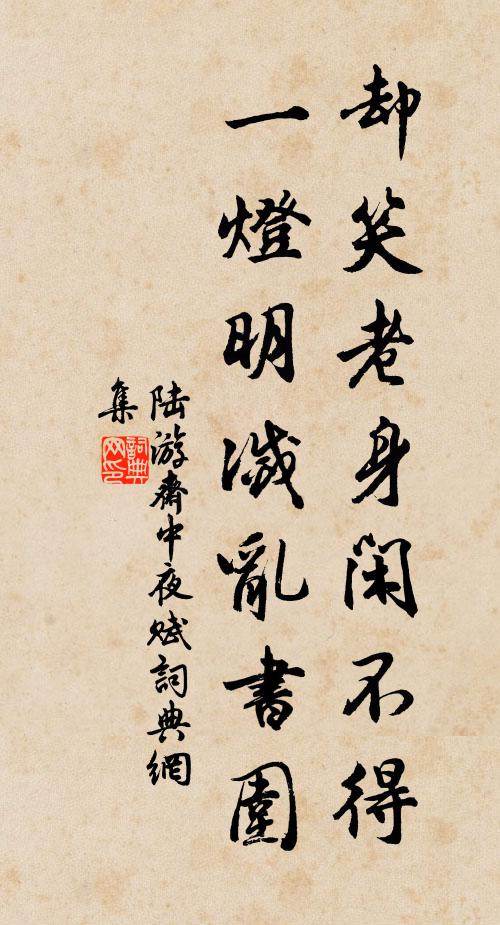 却笑老身閑不得
一燈明滅亂書圍
陸游齋中夜賦詞典網
集
詞典網印